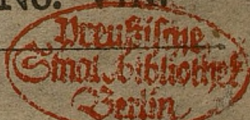 No. VIII.
Preußische
Staatsbibliothek
Berlin